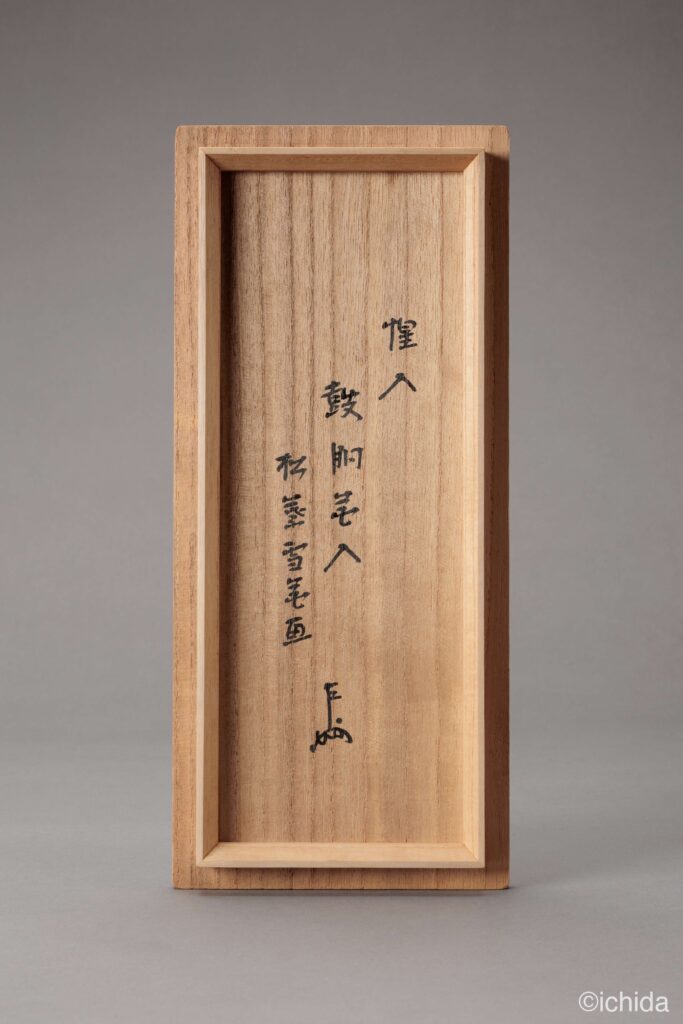 惺入
鼓胴花入
松葉雪花画
左
©ichida